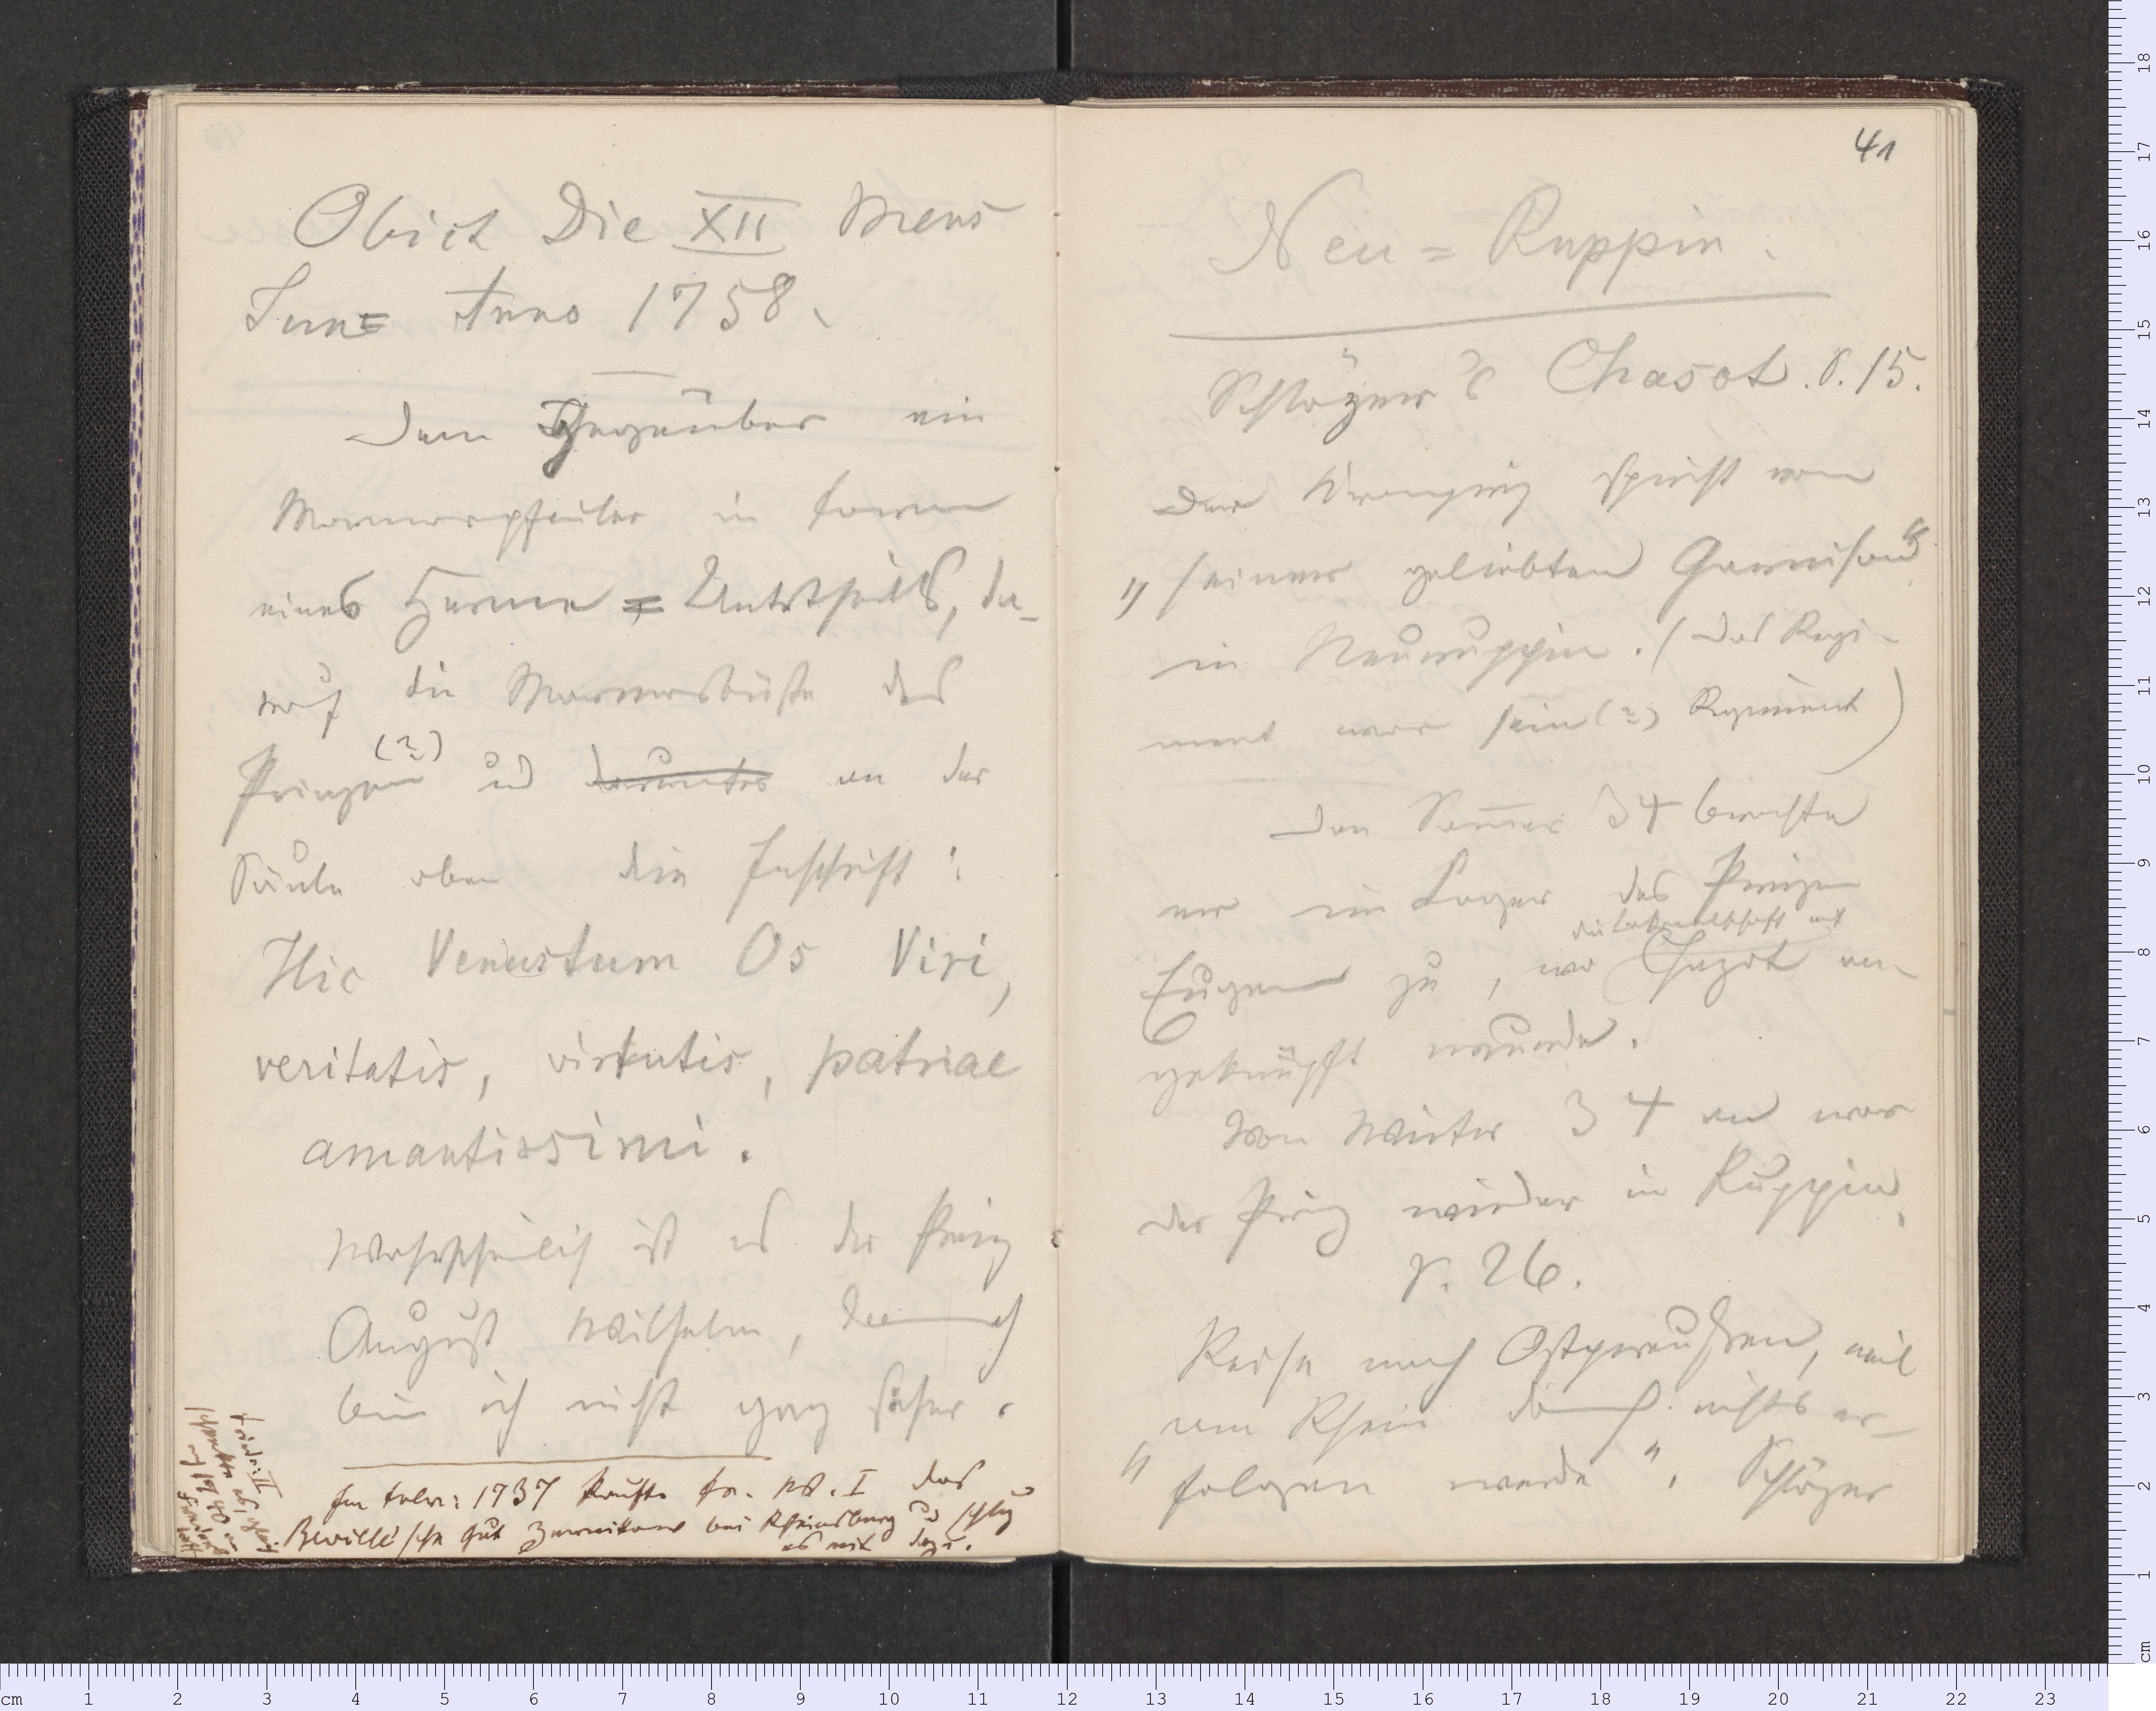 Obiit Die XII Mens
Jun= Anno 1758.
Dem Gegenüber ein
Marmorpfeiler in Form
eines Herme=Untertheils, da-
rauf die Marmorbüste des
Prinzen (?) und darunter an der
Säule oben die Inschrift:
Hic Venustum Os Viri,
veritatis, virtutis, patriae
amantissimi.
Wahrscheinlich ist es der Prinz
August Wilhelm, dennoch
bin ich nicht ganz sicher.
Im Febr: 1737 kaufte Fr. W. I das
Beville'sche Gut Zernikow bei Rheinsberg und schlug
es mit dazu.
41
Neu=Ruppin.
Schlözer's Chasot. S. 15.
Der Kronprinz spricht von
"seiner geliebten Garnison"
in Neuruppin. (Das Regi-
ment war sein (?) Regiment)
Den Sommer 34 brachte
er im Lager des Prinzen
die Bekanntschaft mit
Eugen zu, wo Chazot an-
geknüpft wurde.
Von Winter 34 an war
der Prinz wieder in Ruppin.
S. 26.
Reise nach Ostpreußen, weil
am Rhein doch nichts er-
"folgen werde". Schlözer